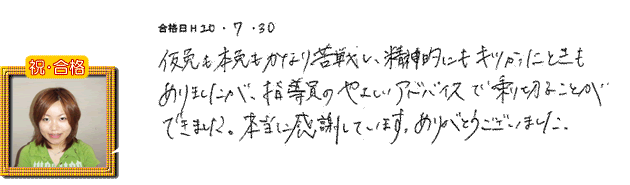 合格日H20・7・30
祝・合格
仮免も本免もかなり苦戦し、精神的にもキツかったときも
ありましたが、指導員のやさしいアドバイスで乗り切ることが
できました。本当に感謝しています。ありがとうございました。